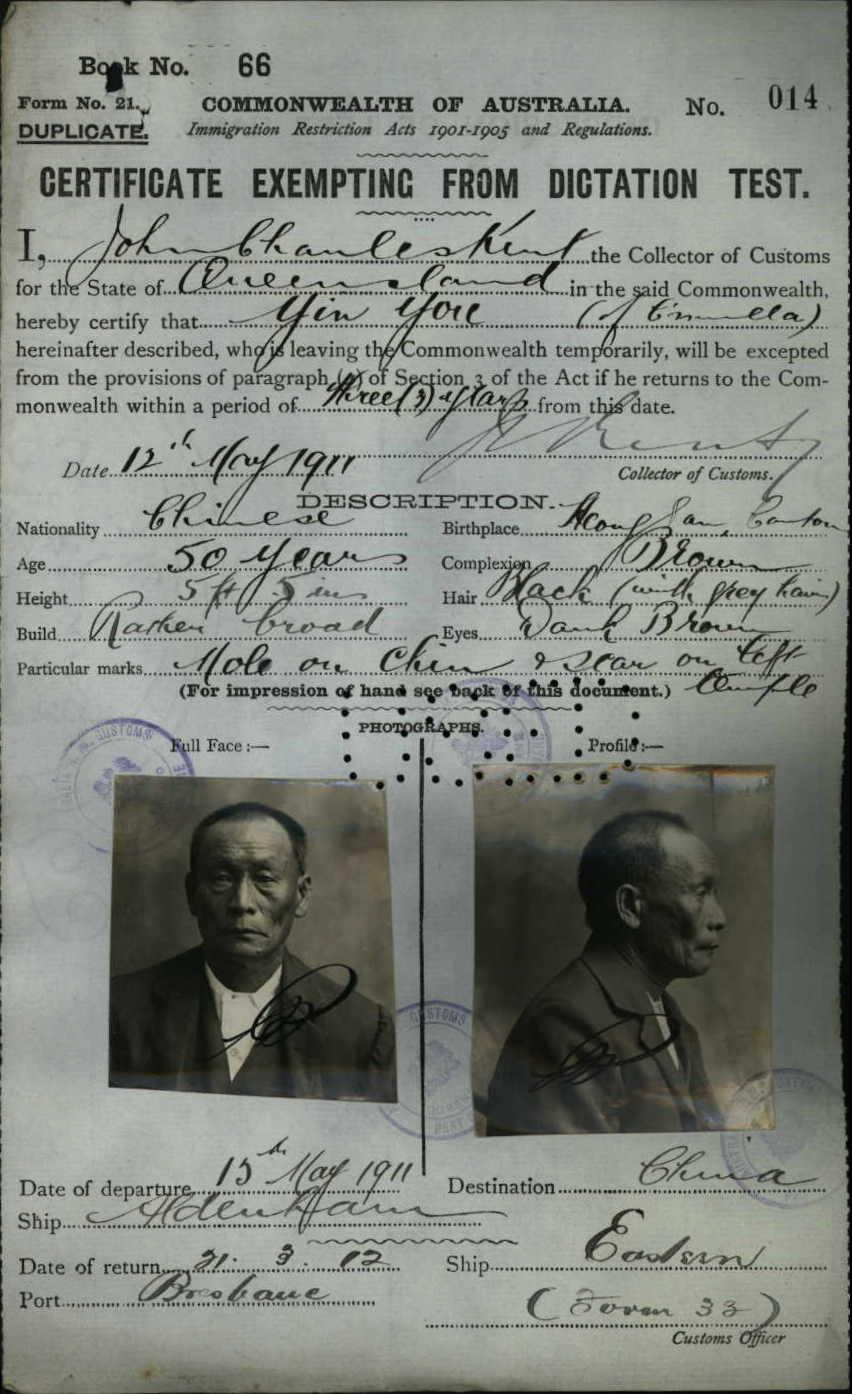 Book No. 66
Form No. 21. COMMONWEALTH OF AUSTRALIA. No. 014
DUPLICATE. Immigration Restriction Acts 1901-1905 and Regulations.
CERTIFICATE EXEMPTING FROM DICTATION TEST.
I, John Charles Kent the Collector of Customs
for the State of Queensland in the said Commonwealth,
hereby certify that Yin You (of
hereinafter described, who is leaving the Commonwealth temporarily, will be excepted
from the provisions of paragraph (a) of Section 3 of the Act if he returns to the Com-
monwealth within a period of three (3) years from this date.
Date 12th May 1911
Collector of Customs.
DESCRIPTION.
Nationality Chinese Birthplace Heong San, Canton
Age 50 years Complexion Brown
Height 5 ft 5 ins Hair Black (with grey hairs)
Build Rather broad Eyes Dark Brown
Particular marks Mole on chin & scar on left
temple
(For impression of hand see back of this document.)
PHOTOGRAPHS.
Full Face :— Profile :—
CUSTOMS
CUSTOMS
Date of departure 15th May 1911 Destination China
Ship Aldenham
Date of return 21. 3. 12 Ship Eastern
Port Brisbane (Form 32)
Customs Officer